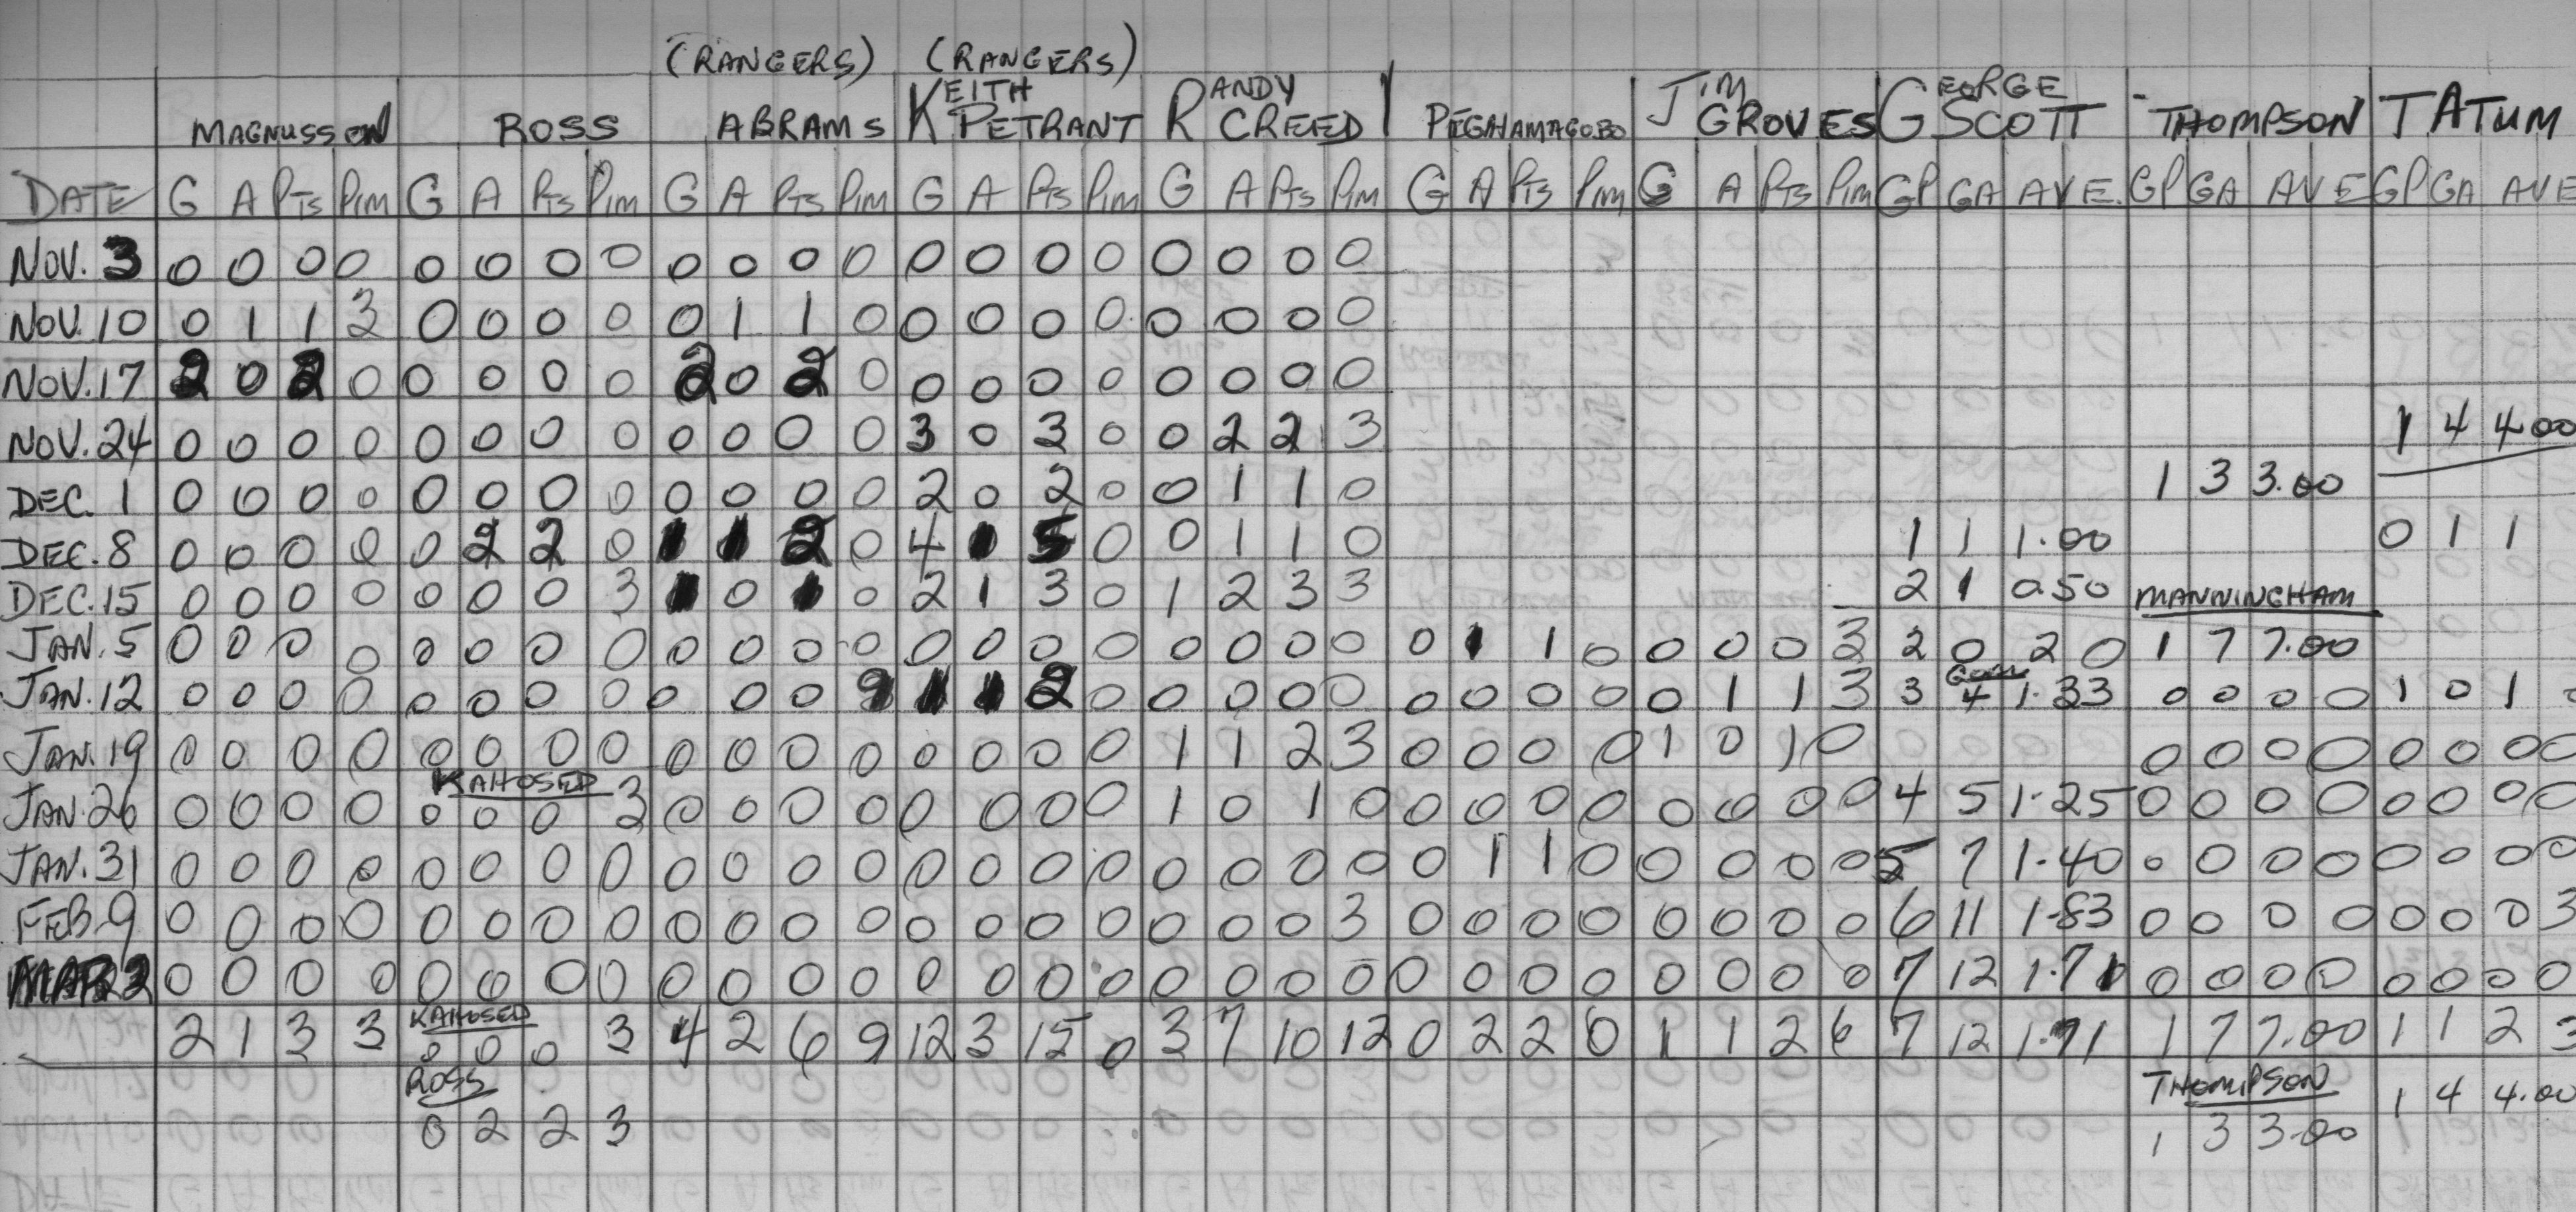 (RANGERS) (RANGERS)
MAGNUSSON ROSS ABRAMS KEITH PETRANT RANDY CREED PEGAHAMAGOBO JIM GROVES GEORGE SCOTT THOMPSON TATUM
DATE G A PTS PIM G A PTS PIM G A PTS PIM G A PTS PIM G A PTS PIM G A PTS PIM G A PTS PIM GP GA AVE. GP GA AVE GP GA AVE
NOV. 3 0 0 0 0 0 0 0 0 0 0 0 0 0 0 0 0 0 0 0 0
NOV. 10 0 1 1 3 0 0 0 0 0 1 1 0 0 0 0 0 0 0 0 0
NOV. 17 2 0 2 0 0 0 0 0 2 0 2 0 0 0 0 0 0 0 0 0
NOV. 24 0 0 0 0 0 0 0 0 0 0 0 0 3 0 3 0 0 2 2 3 1 4 4.00
DEC. 1 0 0 0 0 0 0 0 0 0 0 0 0 2 0 2 0 0 1 1 0 1 3 3.00
DEC. 8 0 0 0 0 0 2 2 0 1 1 2 0 4 1 5 0 0 1 1 0 1 1 1.00 0 1 1
DEC. 15 0 0 0 0 0 0 0 3 1 0 1 0 2 1 3 0 1 2 3 3 2 1 0.50 MANNINGHAM
JAN. 5 0 0 0 0 0 0 0 0 0 0 0 0 0 0 0 0 0 0 0 0 0 1 1 0 0 0 0 3 2 0 2 0 1 7 7.00
JAN. 12 0 0 0 0 0 0 0 0 0 0 0 9 1 1 2 0 0 0 0 0 0 0 0 0 0 1 1 3 3 4 1.33 0 0 0 0 1 0 1 0
JAN. 19 0 0 0 0 0 0 0 0 0 0 0 0 0 0 0 0 1 1 2 3 0 0 0 0 1 0 1 0 0 0 0 0 0 0 0 0
KAHOSED
JAN. 26 0 0 0 0 0 0 0 3 0 0 0 0 0 0 0 0 1 0 1 0 0 0 0 0 0 0 0 0 4 5 1.25 0 0 0 0 0 0 0 0
JAN. 31 0 0 0 0 0 0 0 0 0 0 0 0 0 0 0 0 0 0 0 0 0 1 1 0 0 0 0 0 5 7 1.40 0 0 0 0 0 0 0 0
FEB. 9 0 0 0 0 0 0 0 0 0 0 0 0 0 0 0 0 0 0 0 3 0 0 0 0 0 0 0 0 6 11 1.83 0 0 0 0 0 0 0 3
MAR 2 0 0 0 0 0 0 0 0 0 0 0 0 0 0 0 0 0 0 0 0 0 0 0 0 0 0 0 0 7 12 1.71 0 0 0 0 0 0 0 0
KAHOSED
2 1 3 3 0 0 0 3 4 2 6 9 12 3 15 0 3 7 10 12 0 2 2 0 1 1 2 6 7 12 1.71 1 7 7.00 1 1 2 3
ROSS THOMPSON 1 4 4.00
0 2 2 3 1 3 3.00